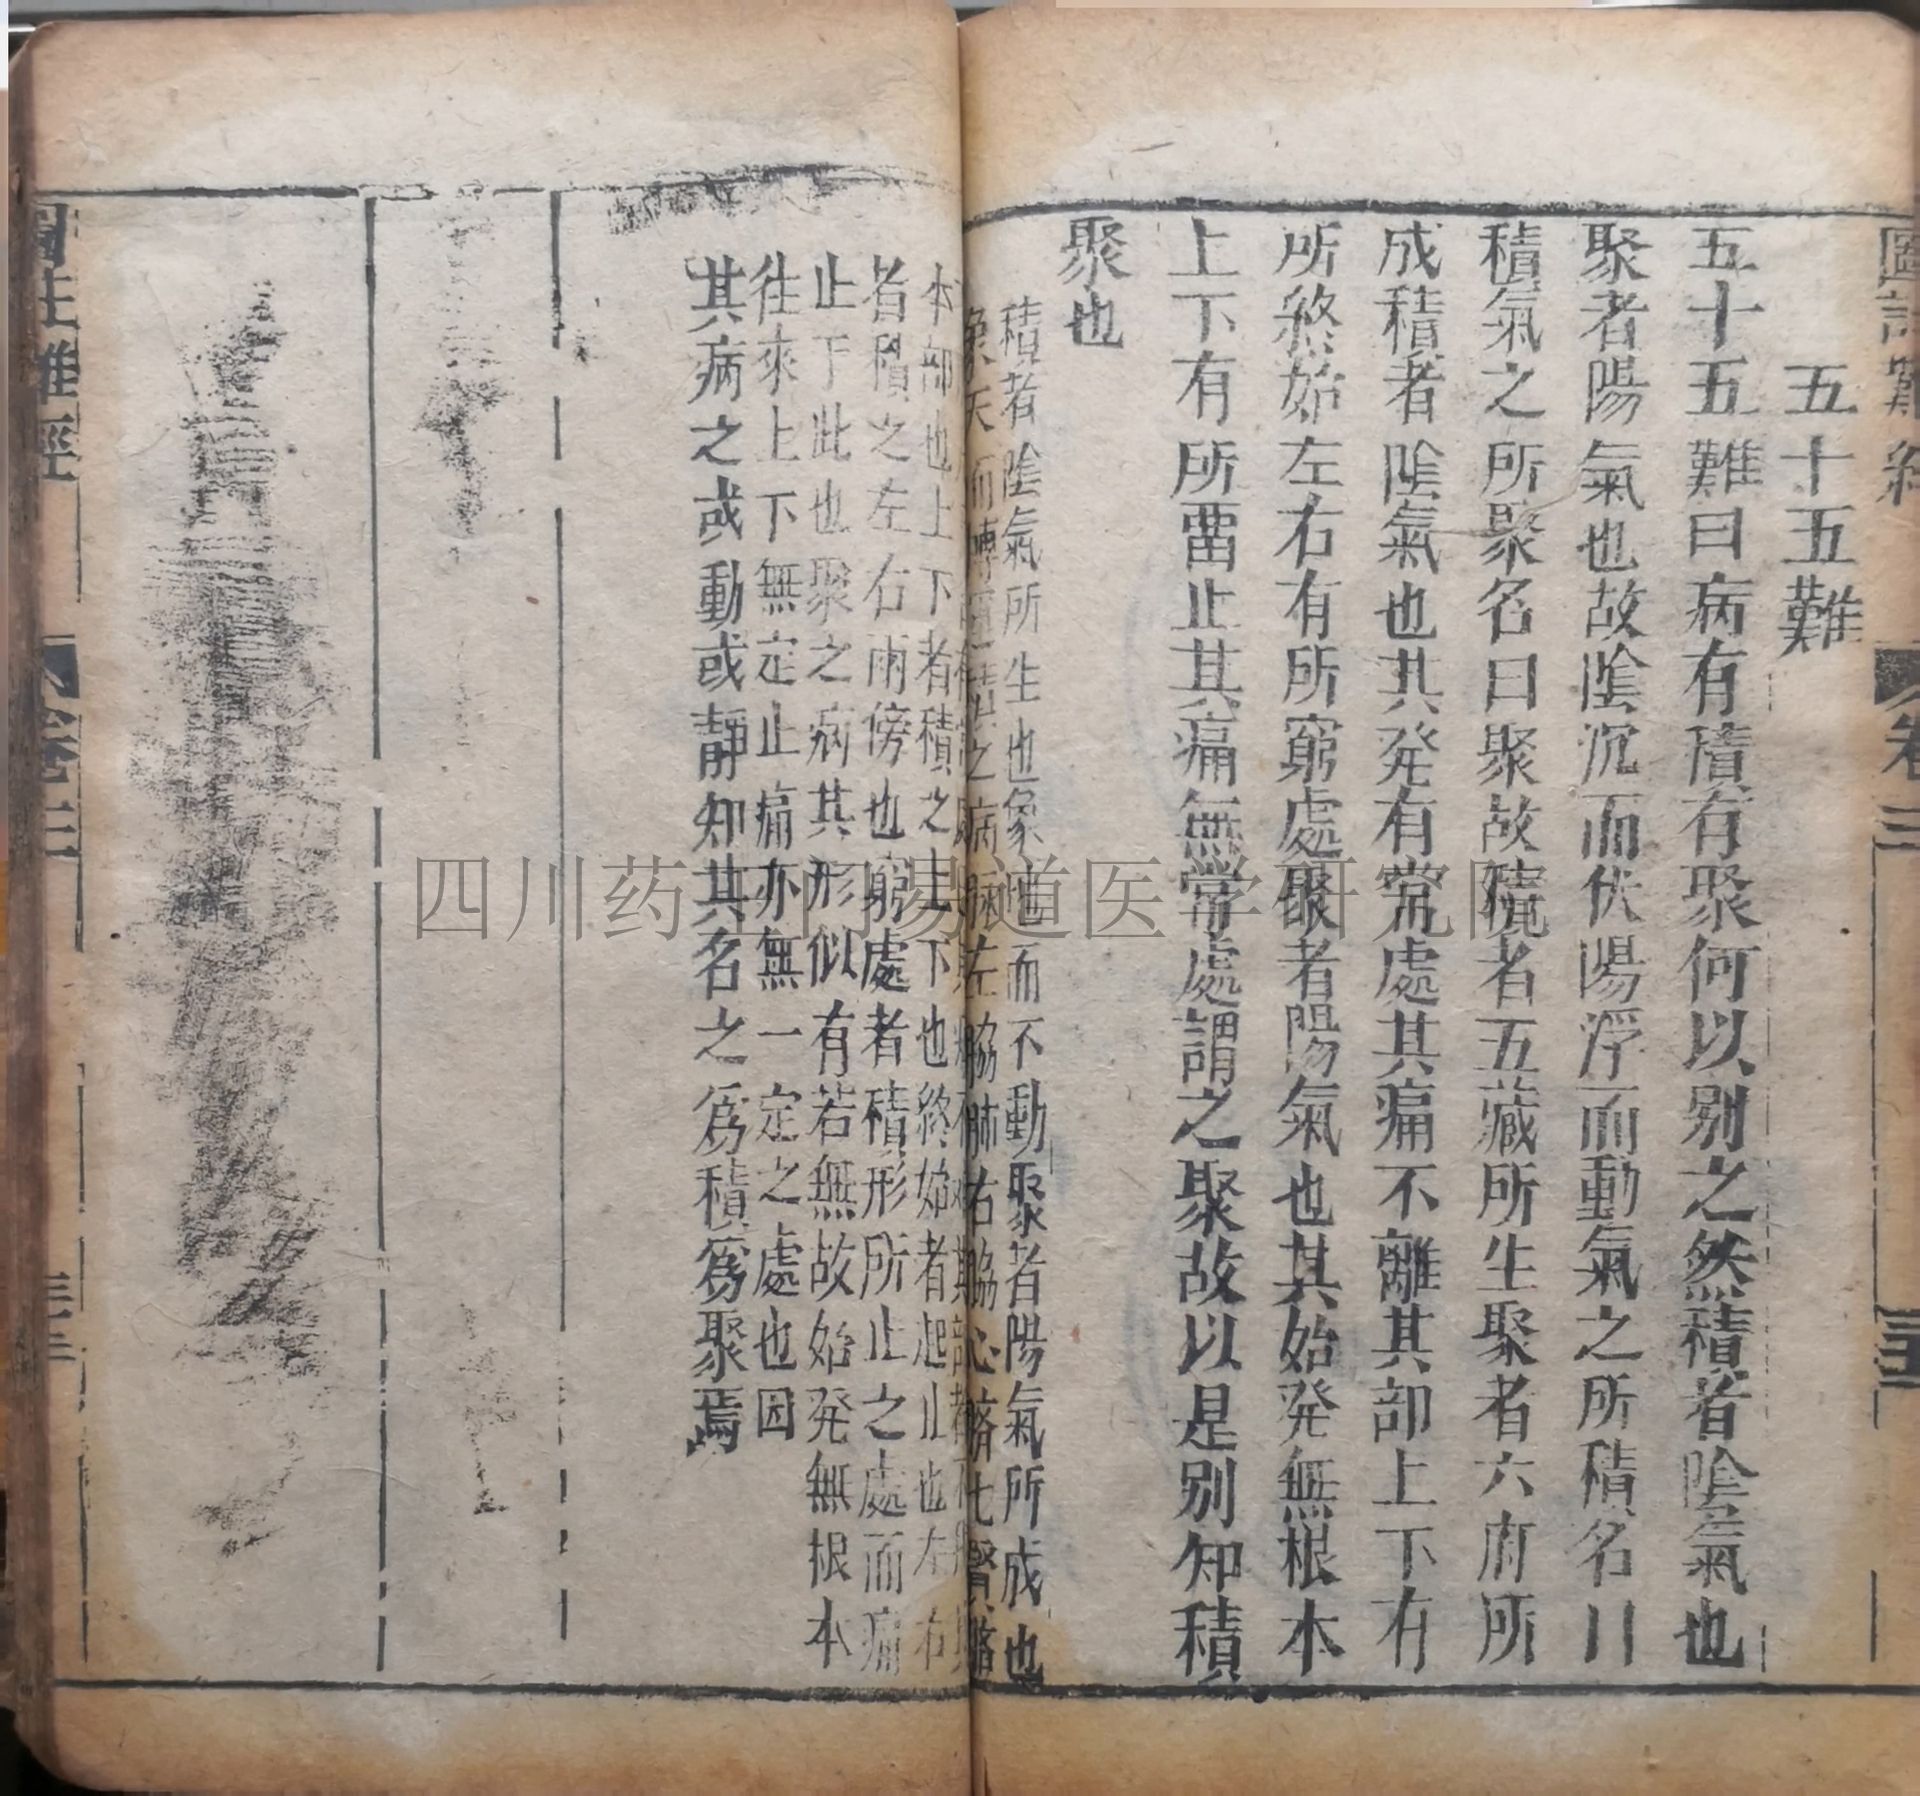 圖註難經 卷三
五十五難
五十五難曰病有積有聚何以别之然積者陰氣也
聚者陽氣也故陰沉而伏陽浮而動氣之所積名曰
積氣之所聚名曰聚故積者五藏所生聚者六府所
成積者陰氣也其発有常處其痛不離其部上下有
所終始左右有所窮處聚者陽氣也其始発無根本
上下有所畱止其痛無常處謂之聚故以是别知積
聚也
積者陰氣所生也象地而不動聚者陽氣所成也
象天而轉運積之病脉左脇肺右脇心臍上腎臍
本部也上下者積之上下也終始者起止也左右
者積之左右兩傍也窮處者積形所止之處而痛
止于此也聚之病其形似有若無故始発無根本
往來上下無定止痛亦無一定之處也因
其病之或動或靜知其名之爲積爲聚焉
圖註難經 卷三
四川药王门易道医学研究院